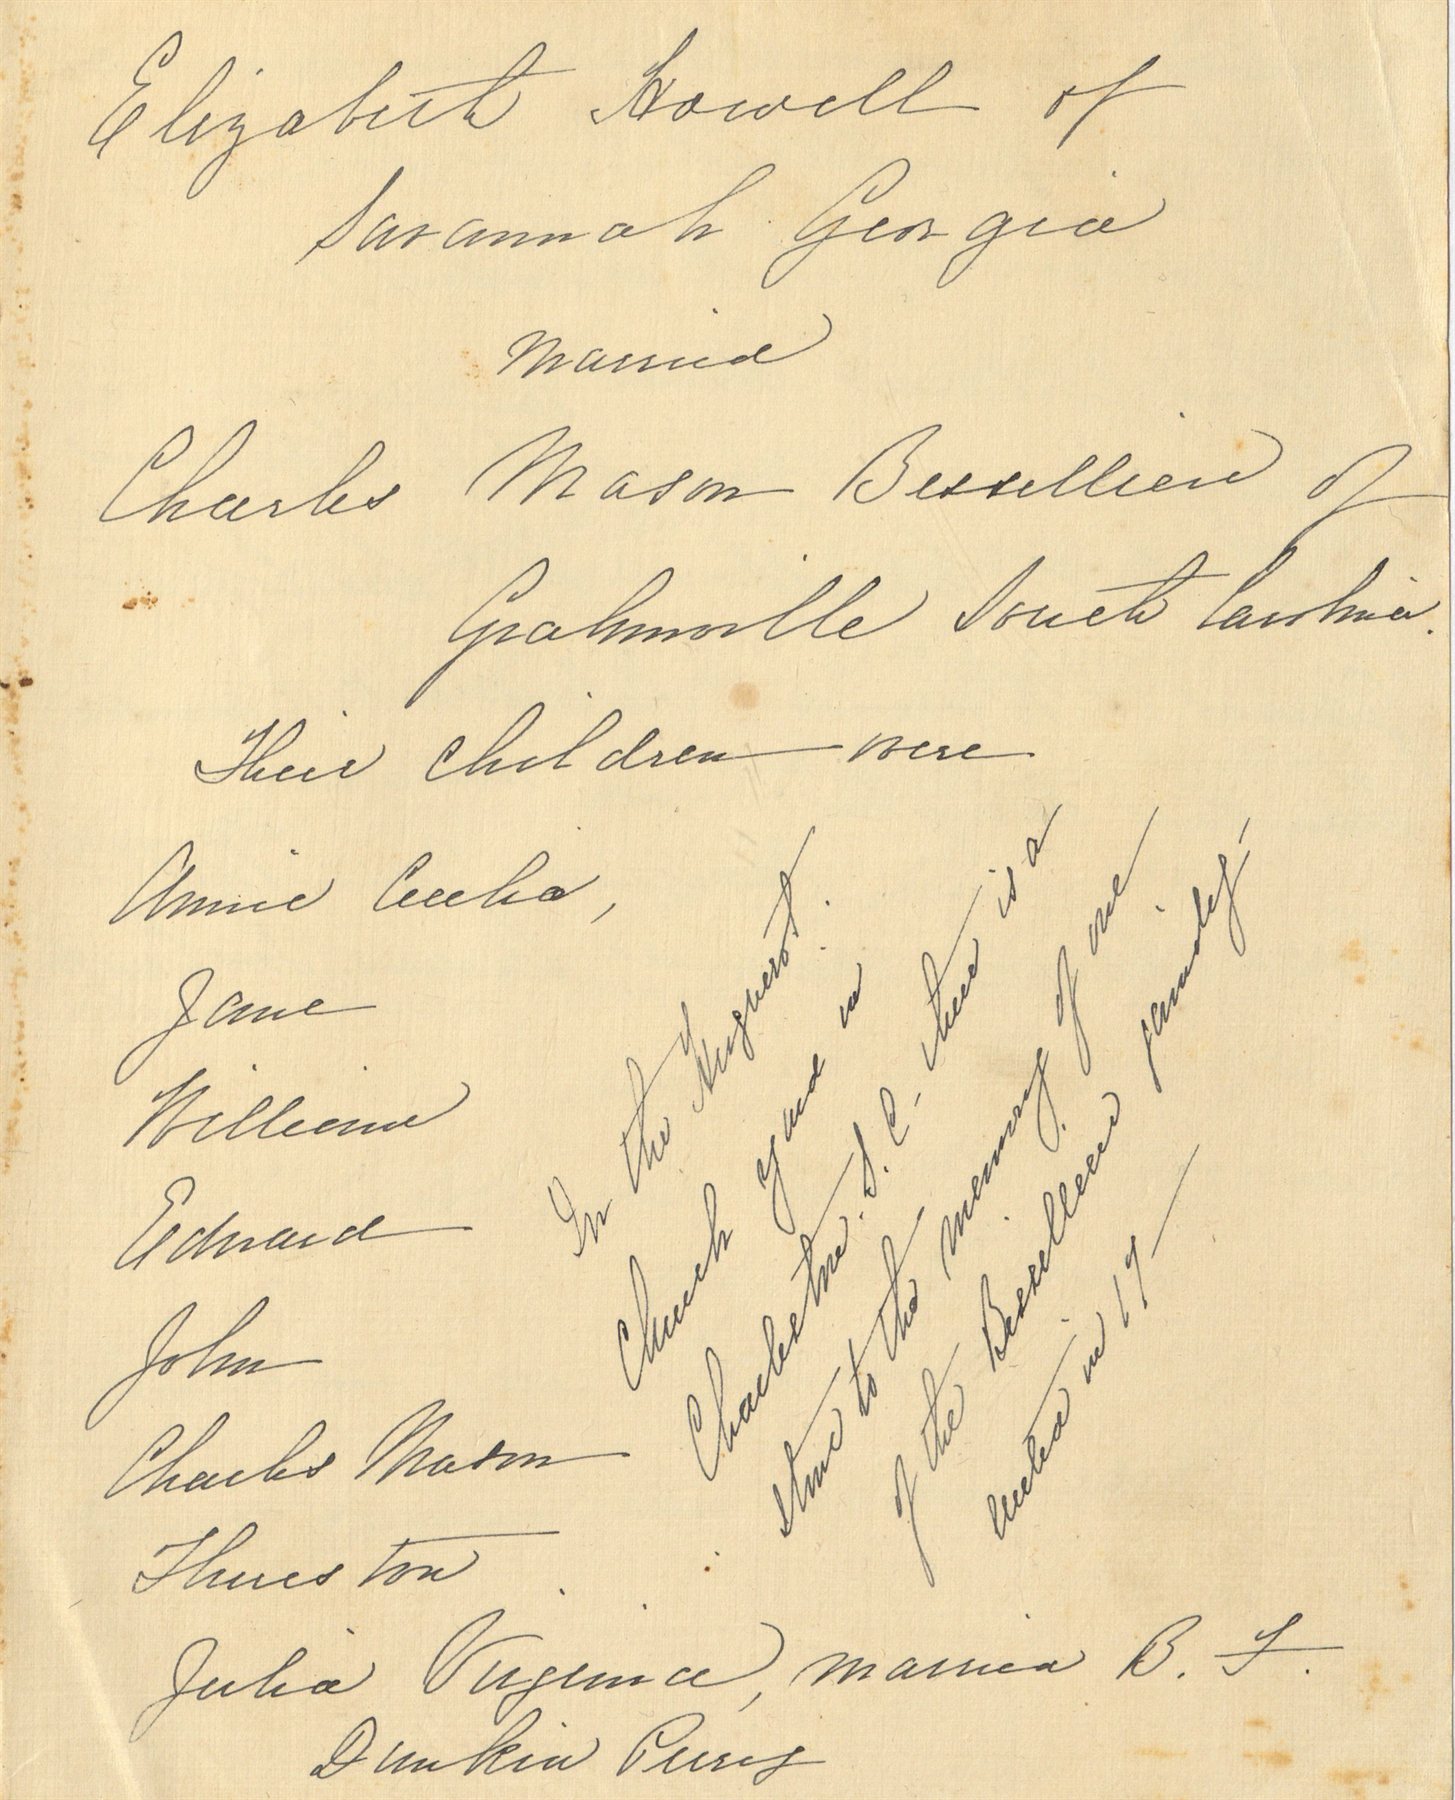 Elizabeth Howell of
Savannah Georgia
married
Charles Mason Bessellieu of
Grahmville South Carolina.
Their children were
Annie Cecelia,
Jane
William
Edward
John
Charles Mason
Thurston
Julia Virginia, married B. F.
Dunkin Perry
In the Huguenot
Church yard in
Charleston. S. C. there is a
stone to the memory of one
of the Bessellieu family-
erected in 17-